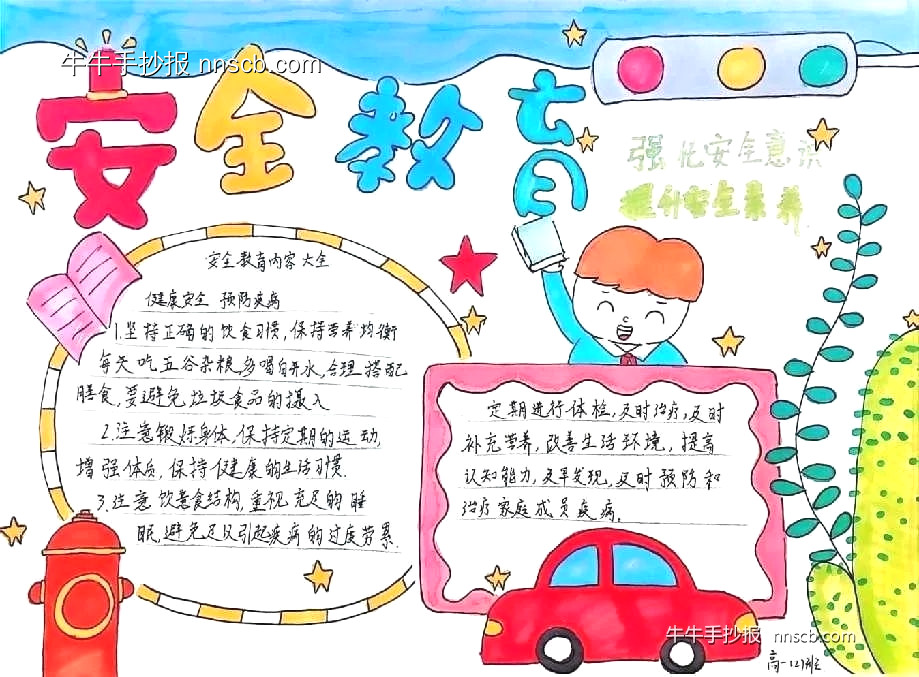 牛牛手抄报 nnscb.com
安全教育
强化安全意识
提升安全素养
安全教育内容大全
健康安全 预防疾病
1.坚持正确的饮食习惯,保持营养均衡
每天吃五谷杂粮,多喝白开水,合理搭配
膳食,要避免垃圾食品的摄入
2.注意锻炼身体,保持定期的运动,
增强体质,保持健康的生活习惯.
3.注意饮善食结构,重视充足的睡
眠,避免足以引起疾病的过度劳累.
定期进行体检,及时治疗,及时
补充营养,改善生活环境,提高
认知能力,及早发现,及时预防和
治疗家庭成员疾病.
牛牛手抄报 nnscb.com
高一12班